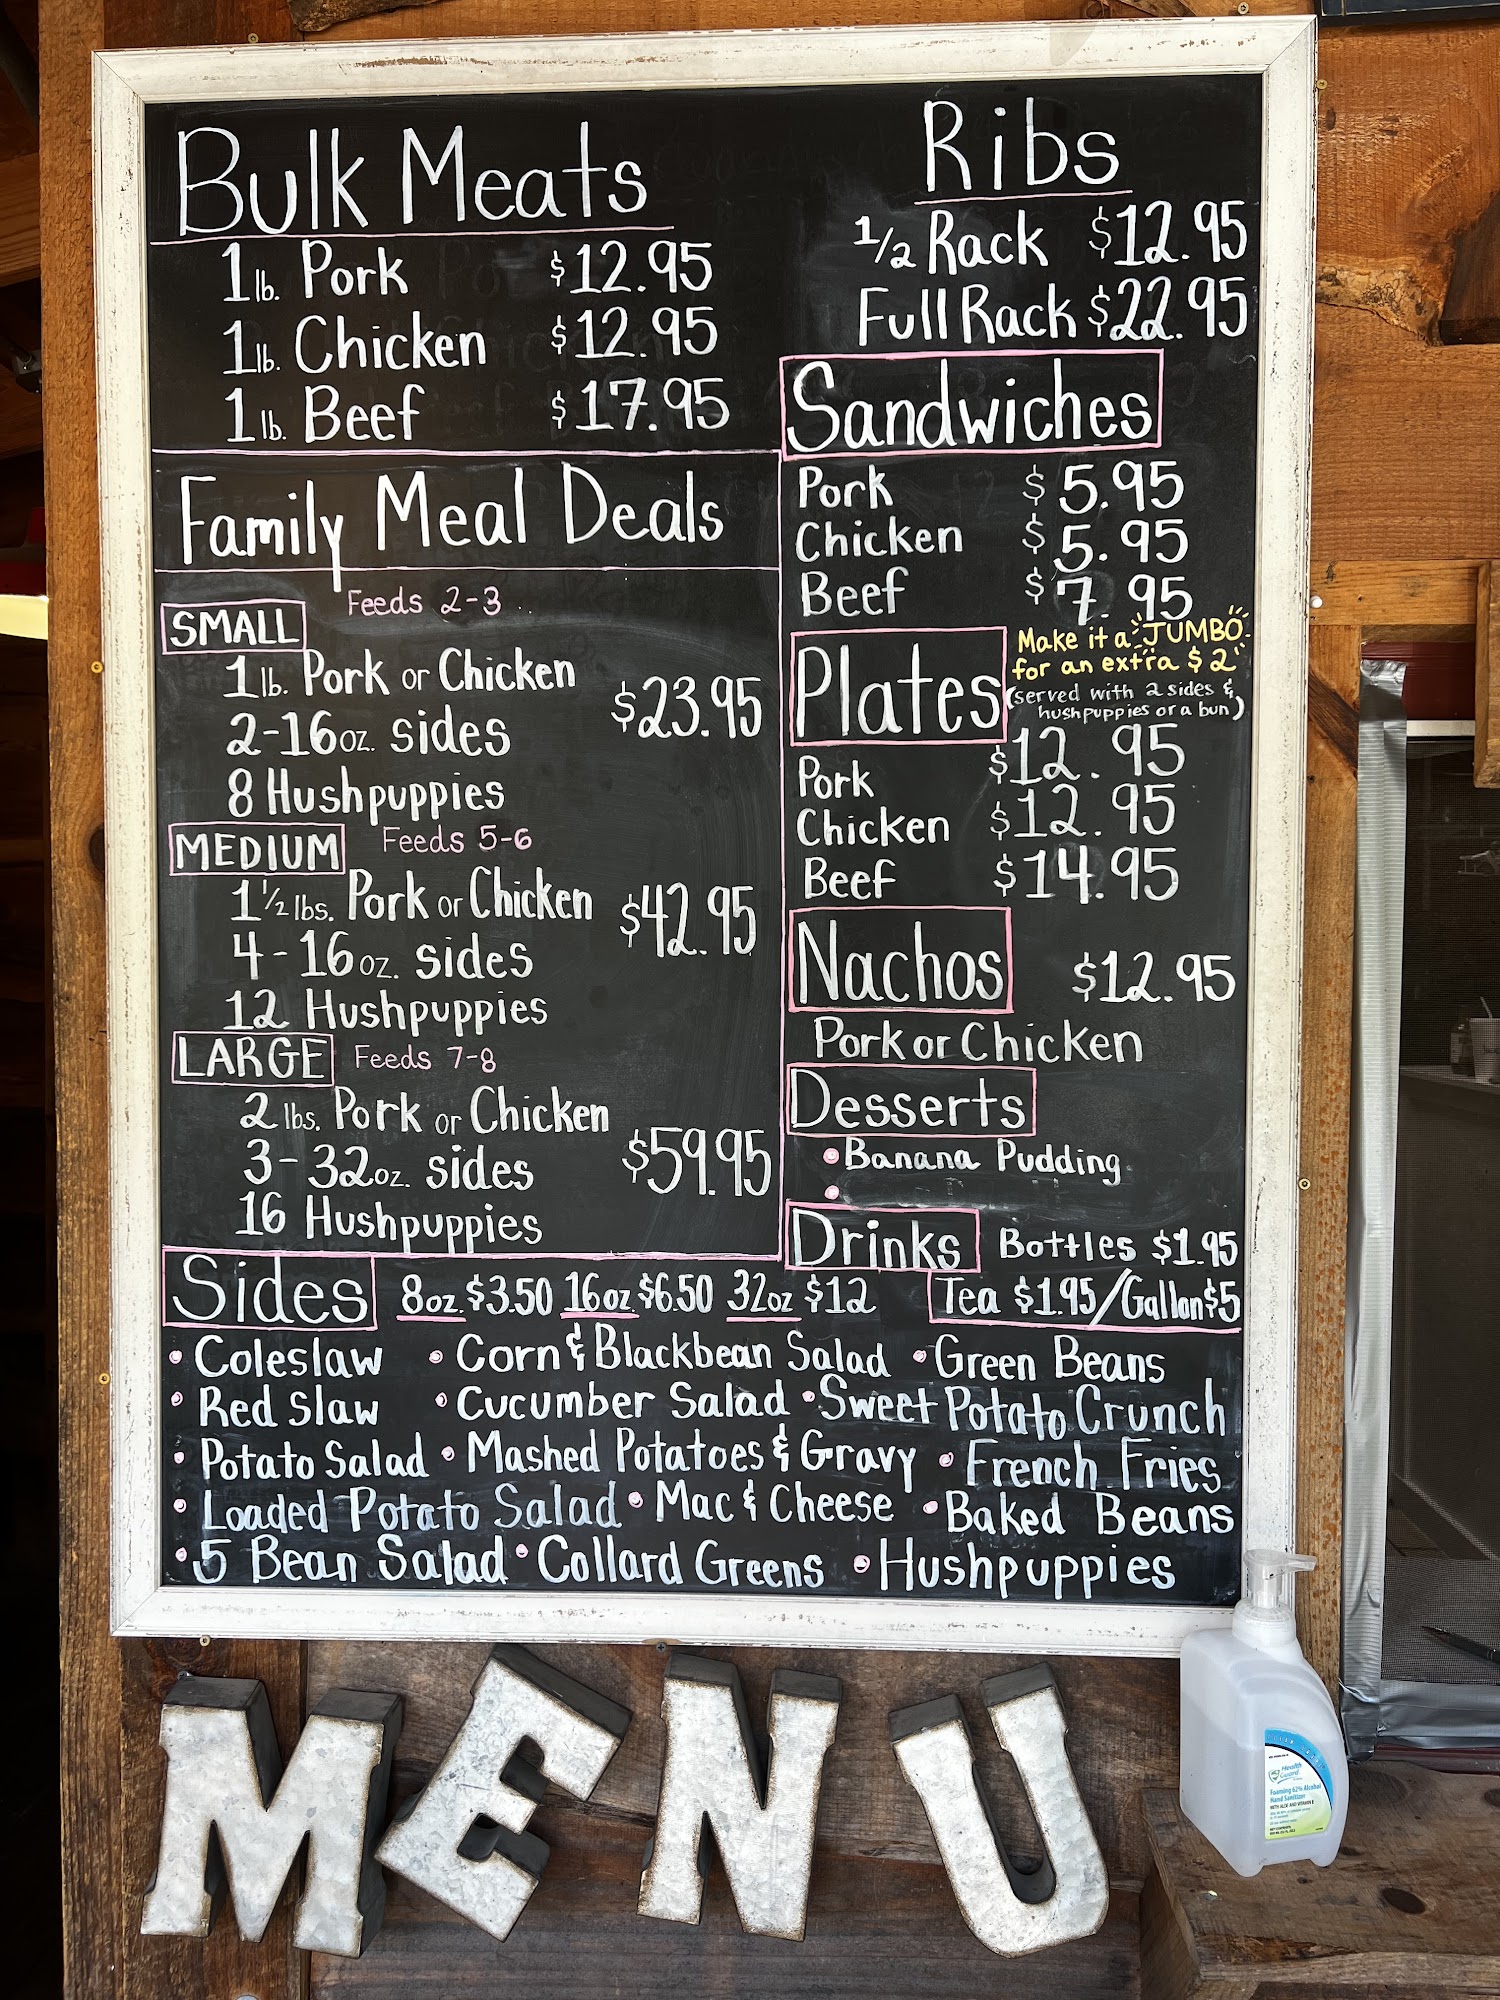 Bulk Meats
1 lb. Pork $12.95
1 lb. Chicken $12.95
1 lb. Beef $17.95
Family Meal Deals
SMALL Feeds 2-3
1 lb. Pork or Chicken
2-16oz. sides $23.95
8 Hushpuppies
MEDIUM Feeds 5-6
1 1/2 lbs. Pork or Chicken $42.95
4-16oz. sides
12 Hushpuppies
LARGE Feeds 7-8
2 lbs. Pork or Chicken
3-32oz. sides $59.95
16 Hushpuppies
Ribs
1/2 Rack $12.95
Full Rack $22.95
Sandwiches
Pork $5.95
Chicken $5.95
Beef $7.95
Make it a JUMBO
for an extra $2
Plates (served with 2 sides &
hushpuppies or a bun)
Pork $12.95
Chicken $12.95
Beef $14.95
Nachos $12.95
Pork or Chicken
Desserts
• Banana Pudding
•
Drinks Bottles $1.95
Tea $1.95/Gallon $5
Sides 8oz. $3.50 16oz $6.50 32oz $12
• Coleslaw • Corn & Blackbean Salad • Green Beans
• Red Slaw • Cucumber Salad • Sweet Potato Crunch
• Potato Salad • Mashed Potatoes & Gravy • French Fries
• Loaded Potato Salad • Mac & Cheese • Baked Beans
• 5 Bean Salad • Collard Greens • Hushpuppies
MENU
Health
Guard
Foaming 62% Alcohol
Hand Sanitizer
WITH ALOE AND VITAMIN E